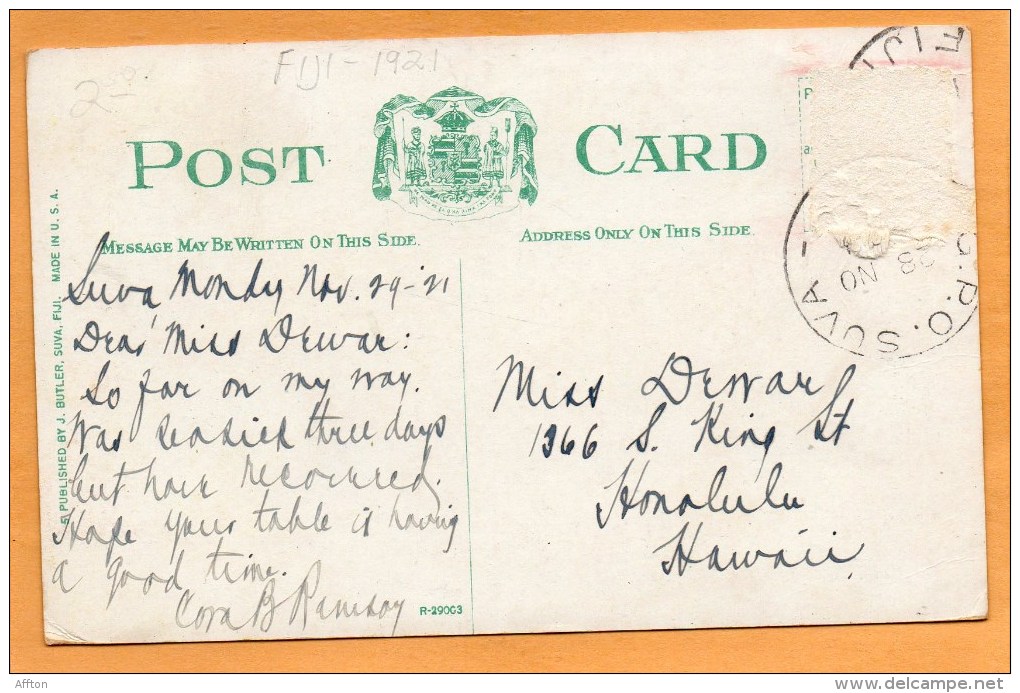 2
FIJI - 1921
POST CARD
MESSAGE MAY BE WRITTEN ON THIS SIDE.
ADDRESS ONLY ON THIS SIDE.
FIJI
G.P.O. SUVA -
28 NO
51 PUBLISHED BY J. BUTLER, SUVA, FIJI. MADE IN U. S. A.
Suva Monday Nov. 29-21
Dear Miss Dewar:
So far on my way.
Was seasick three days
but have recovered.
Hope your table is having
a good time.
Cora B Ramsay
Miss Dewar
1366 S. King St
Honolulu
Hawaii
R-29003
Affton
http://www.delcampe.net